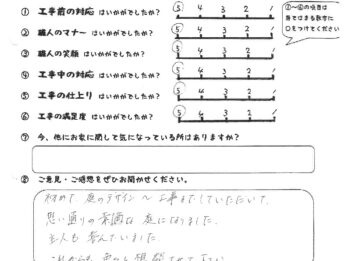 ① 工事前の対応 はいかがでしたか? ⑤ 4 3 2 1
② 職人のマナー はいかがでしたか? ⑤ 4 3 2 1
③ 職人の笑顔 はいかがでしたか? ⑤ 4 3 2 1
④ 工事中の対応 はいかがでしたか? ⑤ 4 3 2 1
⑤ 工事の仕上り はいかがでしたか? ⑤ 4 3 2 1
⑥ 工事の満足度 はいかがでしたか? ⑤ 4 3 2 1
①〜⑥の項目は
あてはまる数字に
○をつけてください
⑦ 今、他にお家に関して気になっている所はありますか?
⑧ ご意見・ご感想をぜひお聞かせください。
初めて、庭のデザイン〜工事までしていただいて、
思い通りの素適な庭になりました。
主人も喜んでいました
これからも